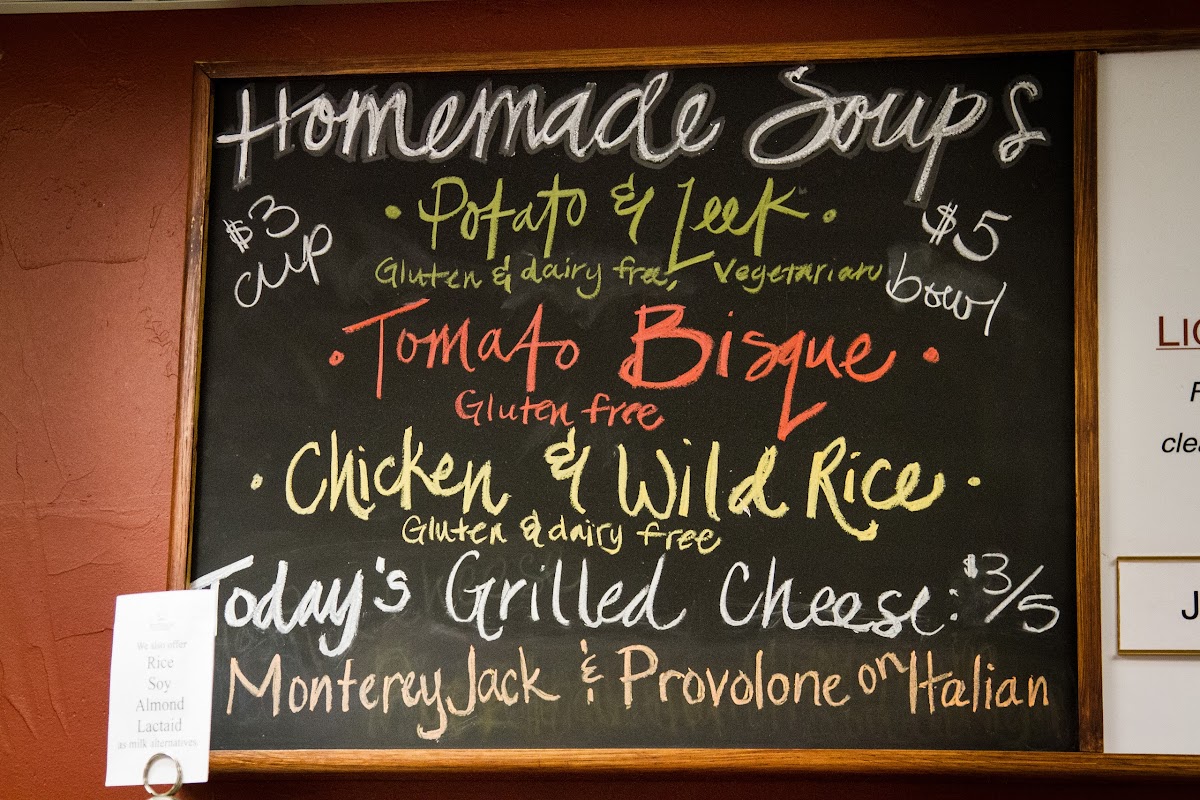 Homemade Soups
$3
cup
$5
bowl
· Potato & Leek ·
Gluten & dairy free, Vegetarian
· Tomato Bisque ·
Gluten free
· Chicken & Wild Rice ·
Gluten & dairy free
Today's Grilled Cheese: $3/5
Monterey Jack & Provolone on Italian
We also offer
Rice
Soy
Almond
Lactaid
as milk alternatives.